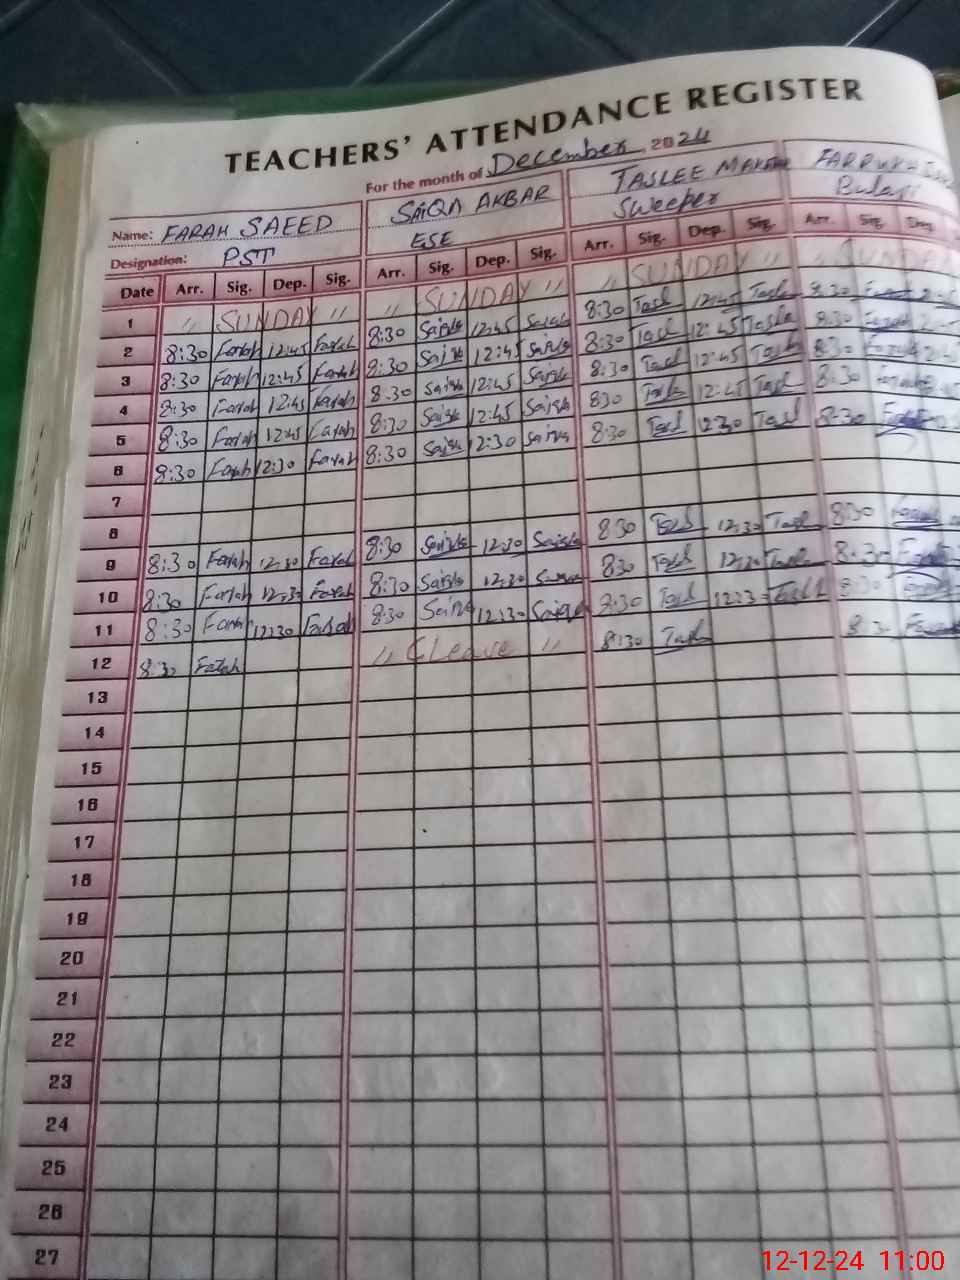 TEACHERS' ATTENDANCE REGISTER
For the month of December 2024
Name: FARAH SAEED SAIQA AKBAR TASLEE
Designation: PST ESE Sweeper
Date Arr. Sig. Dep. Sig. Arr. Sig. Dep. Sig. Arr. Sig. Dep. Sig. Arr. Sig. Dep.
1 " SUNDAY " " SUNDAY " " SUNDAY " "
2 8:30 Farah 12:45 Farah 8:30 Saiqa 12:45 Saiqa 8:30 Tasl 12:45 Tasl 8:30
3 8:30 Farah 12:45 Farah 8:30 Saiqa 12:45 Saiqa 8:30 Tasl 12:45 Tasl 8:30
4 8:30 Farah 12:45 Farah 8:30 Saiqa 12:45 Saiqa 8:30 Tasl 12:45 Tasl 8:30
5 8:30 Farah 12:45 Farah 8:30 Saiqa 12:45 Saiqa 830 Tasl 12:45 Tasl 8:30
6 8:30 Farah 12:30 Farah 8:30 Saiqa 12:30 Saiqa 8:30 Tasl 12:30 Tasl 8:30
7
8
9 8:30 Farah 12:30 Farah 8:30 Saiqa 12:30 Saiqa 8:30 Tasl 12:30 Tasl 8:30
10 8:30 Farah 12:30 Farah 8:30 Saiqa 12:30 Saiqa 830 Tasl 12:30 Tasl 8:30
11 8:30 Farah 12:30 Farah 8:30 Saiqa 12:30 Saiqa 8:30 Tasl 12:30 Tasl 8:30
12 8:30 Farah " Leave " 8:30 Tasl 8:30
13
14
15
16
17
18
19
20
21
22
23
24
25
26
27
12-12-24 11:00